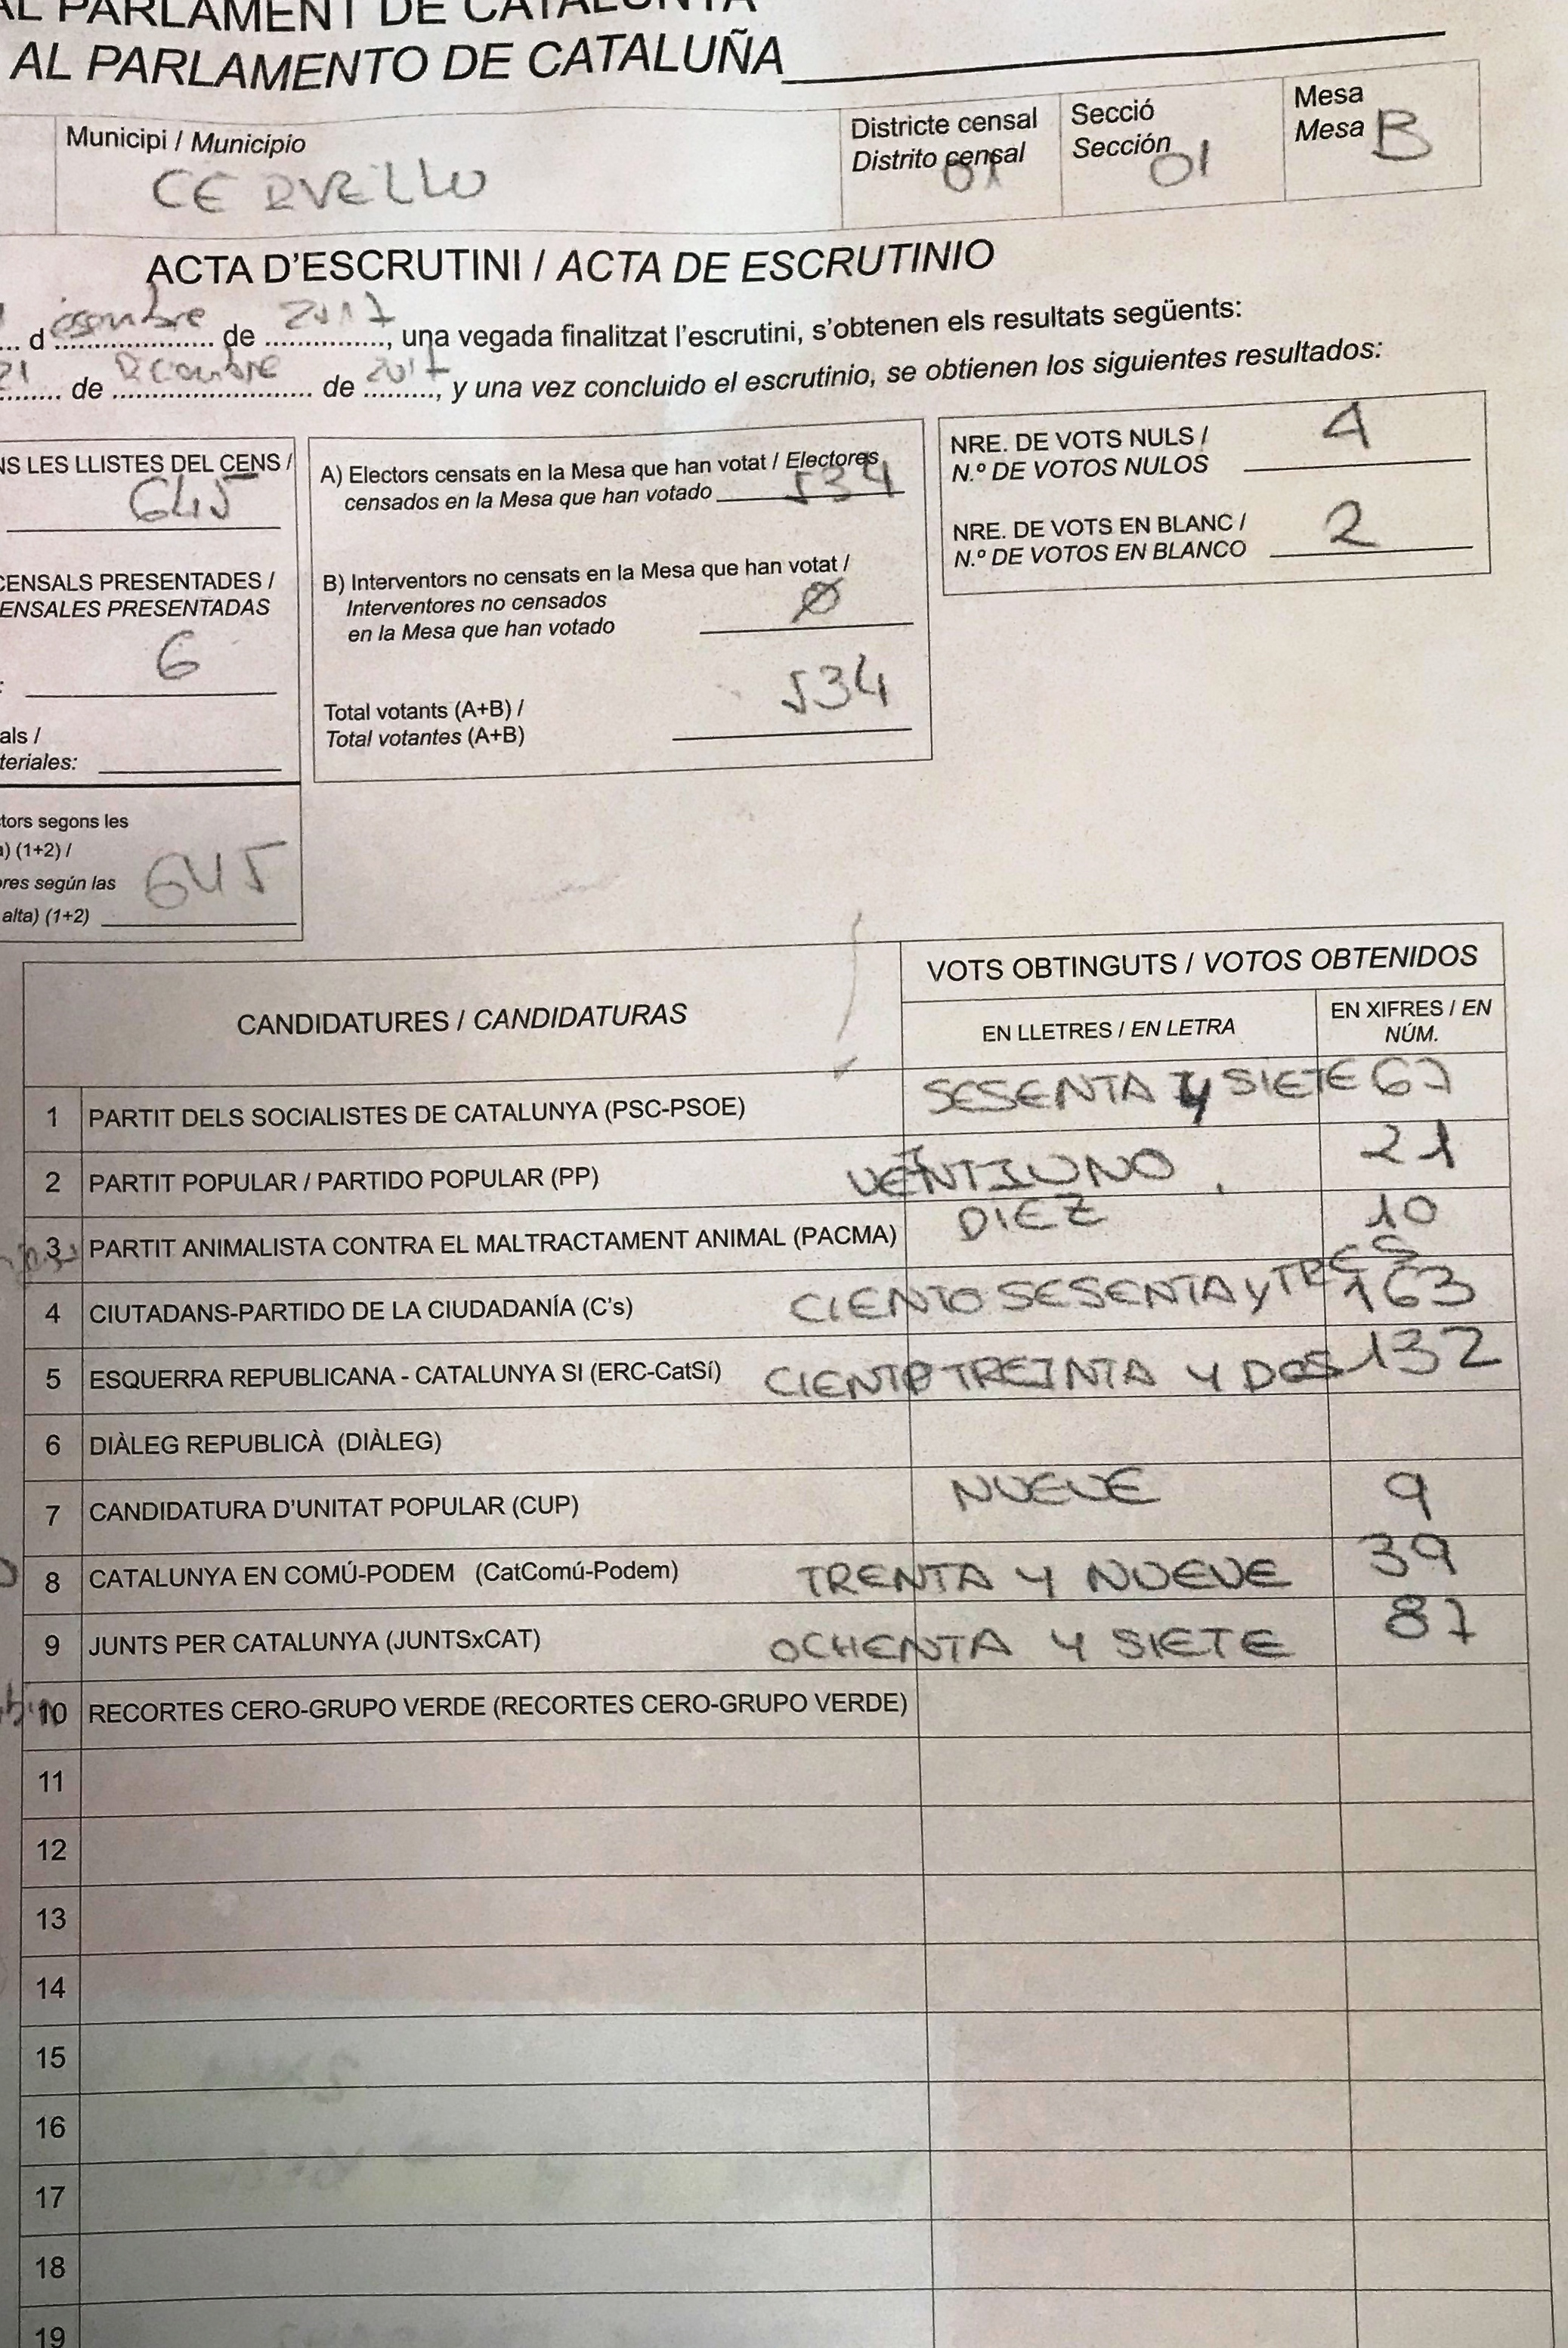 AL PARLAMENT DE CATALUNYA
AL PARLAMENTO DE CATALUÑA
Municipi / Municipio
CERVELLO
Districte censal
Distrito censal
01
Secció
Sección
01
Mesa
Mesa B
ACTA D'ESCRUTINI / ACTA DE ESCRUTINIO
... d esembre de 2017, una vegada finalitzat l'escrutini, s'obtenen els resultats següents:
21 de Diciembre de 2017, y una vez concluido el escrutinio, se obtienen los siguientes resultados:
NS LES LLISTES DEL CENS /
645
CENSALS PRESENTADES /
ENSALES PRESENTADAS
6
als /
teriales:
tors segons les
a) (1+2) /
ores según las
alta) (1+2)
645
A) Electors censats en la Mesa que han votat / Electores
censados en la Mesa que han votado 534
B) Interventors no censats en la Mesa que han votat /
Interventores no censados
en la Mesa que han votado
Ø
Total votants (A+B) /
Total votantes (A+B)
534
NRE. DE VOTS NULS /
N.º DE VOTOS NULOS
4
NRE. DE VOTS EN BLANC /
N.º DE VOTOS EN BLANCO
2
CANDIDATURES / CANDIDATURAS
VOTS OBTINGUTS / VOTOS OBTENIDOS
EN LLETRES / EN LETRA
EN XIFRES / EN
NÚM.
1 PARTIT DELS SOCIALISTES DE CATALUNYA (PSC-PSOE) SESENTA y SIETE 67
2 PARTIT POPULAR / PARTIDO POPULAR (PP) VENTIUNO 21
3 PARTIT ANIMALISTA CONTRA EL MALTRACTAMENT ANIMAL (PACMA) DIEZ 10
4 CIUTADANS-PARTIDO DE LA CIUDADANÍA (C's) CIENTO SESENTA y TRES 163
5 ESQUERRA REPUBLICANA - CATALUNYA SI (ERC-CatSí) CIENTO TREINTA Y DOS 132
6 DIÀLEG REPUBLICÀ (DIÀLEG)
7 CANDIDATURA D'UNITAT POPULAR (CUP) NUEVE 9
8 CATALUNYA EN COMÚ-PODEM (CatComú-Podem) TRENTA Y NUEVE 39
9 JUNTS PER CATALUNYA (JUNTSxCAT) OCHENTA Y SIETE 87
10 RECORTES CERO-GRUPO VERDE (RECORTES CERO-GRUPO VERDE)
11
12
13
14
15
16
17
18
19